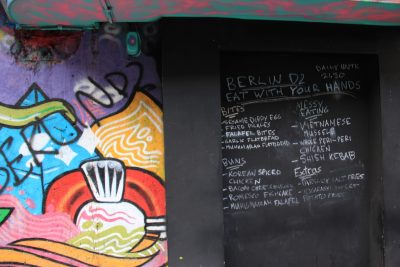 BERLIN D2
EAT WITH YOUR HANDS
BITES
- SESAME DIPPY EGG
FRIED PICKLES
FALAFEL BITES
- GARLIC FLATBREAD
FLATBREAD
BUNS
- KOREAN SPICED
CHICKEN
- BACON CHEESEBURGER
- ROMESCO FISHCAKE
FALAFEL
MESSY
EATING
- VIETNAMESE
MUSSELS
- WHOLE PERI-PERI
CHICKEN
- SHISH KEBAB
Extras
SALT FRIES
POTATO